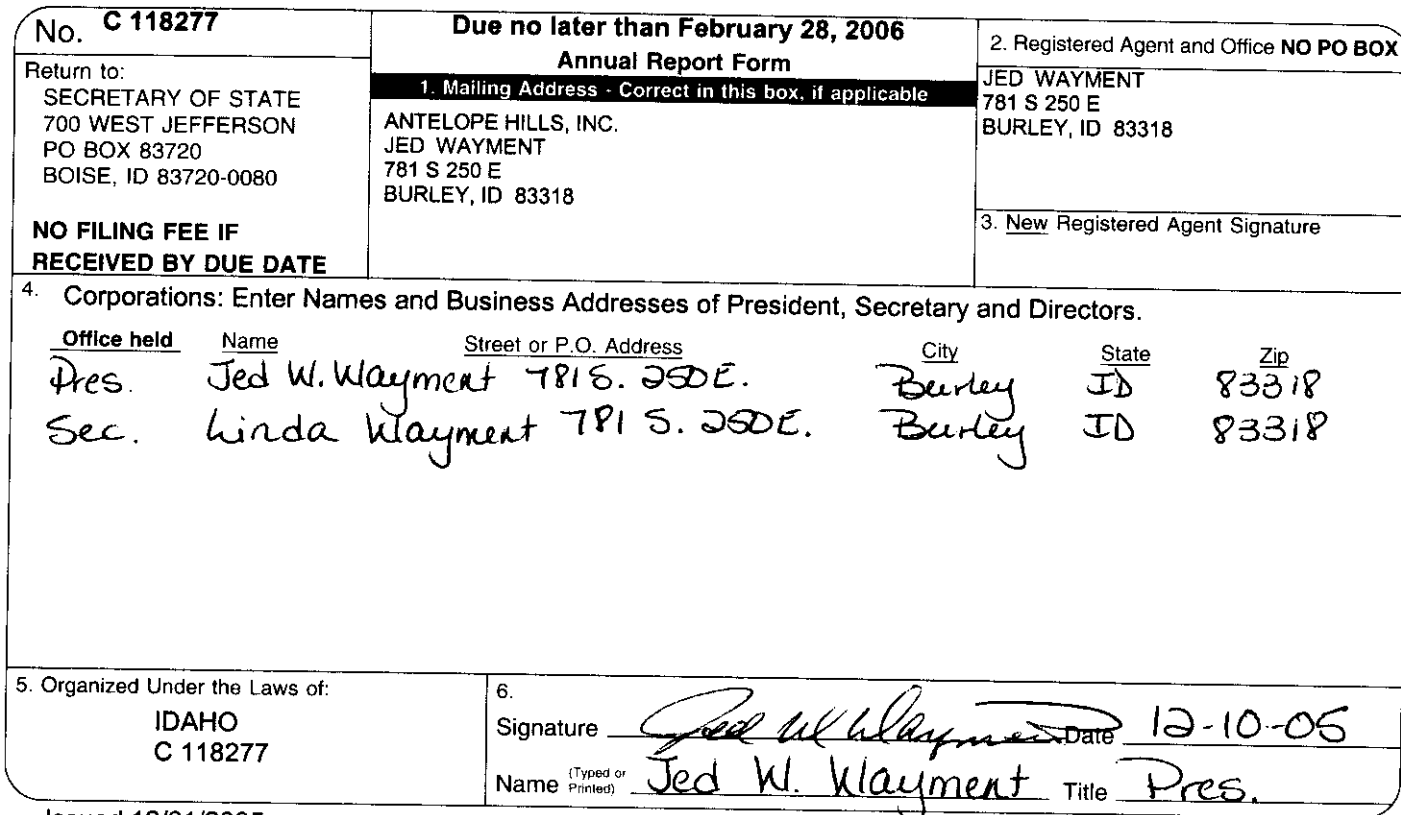 No. C 118277
Return to:
SECRETARY OF STATE
700 WEST JEFFERSON
PO BOX 83720
BOISE, ID 83720-0080
NO FILING FEE IF
RECEIVED BY DUE DATE
Due no later than February 28, 2006
Annual Report Form
1. Mailing Address - Correct in this box, if applicable
ANTELOPE HILLS, INC.
JED WAYMENT
781 S 250 E
BURLEY, ID 83318
2. Registered Agent and Office NO PO BOX
JED WAYMENT
781 S 250 E
BURLEY, ID 83318
3. New Registered Agent Signature
4. Corporations: Enter Names and Business Addresses of President, Secretary and Directors.
Office held Name Street or P.O. Address City State Zip
Pres. Jed W. Wayment 781 S. 250 E. Burley ID 83318
Sec. Linda Wayment 781 S. 250 E. Burley ID 83318
5. Organized Under the Laws of:
IDAHO
C 118277
6.
Signature Jed W Wayment Date 12-10-05
Name (Typed or Printed) Jed W. Wayment Title Pres.